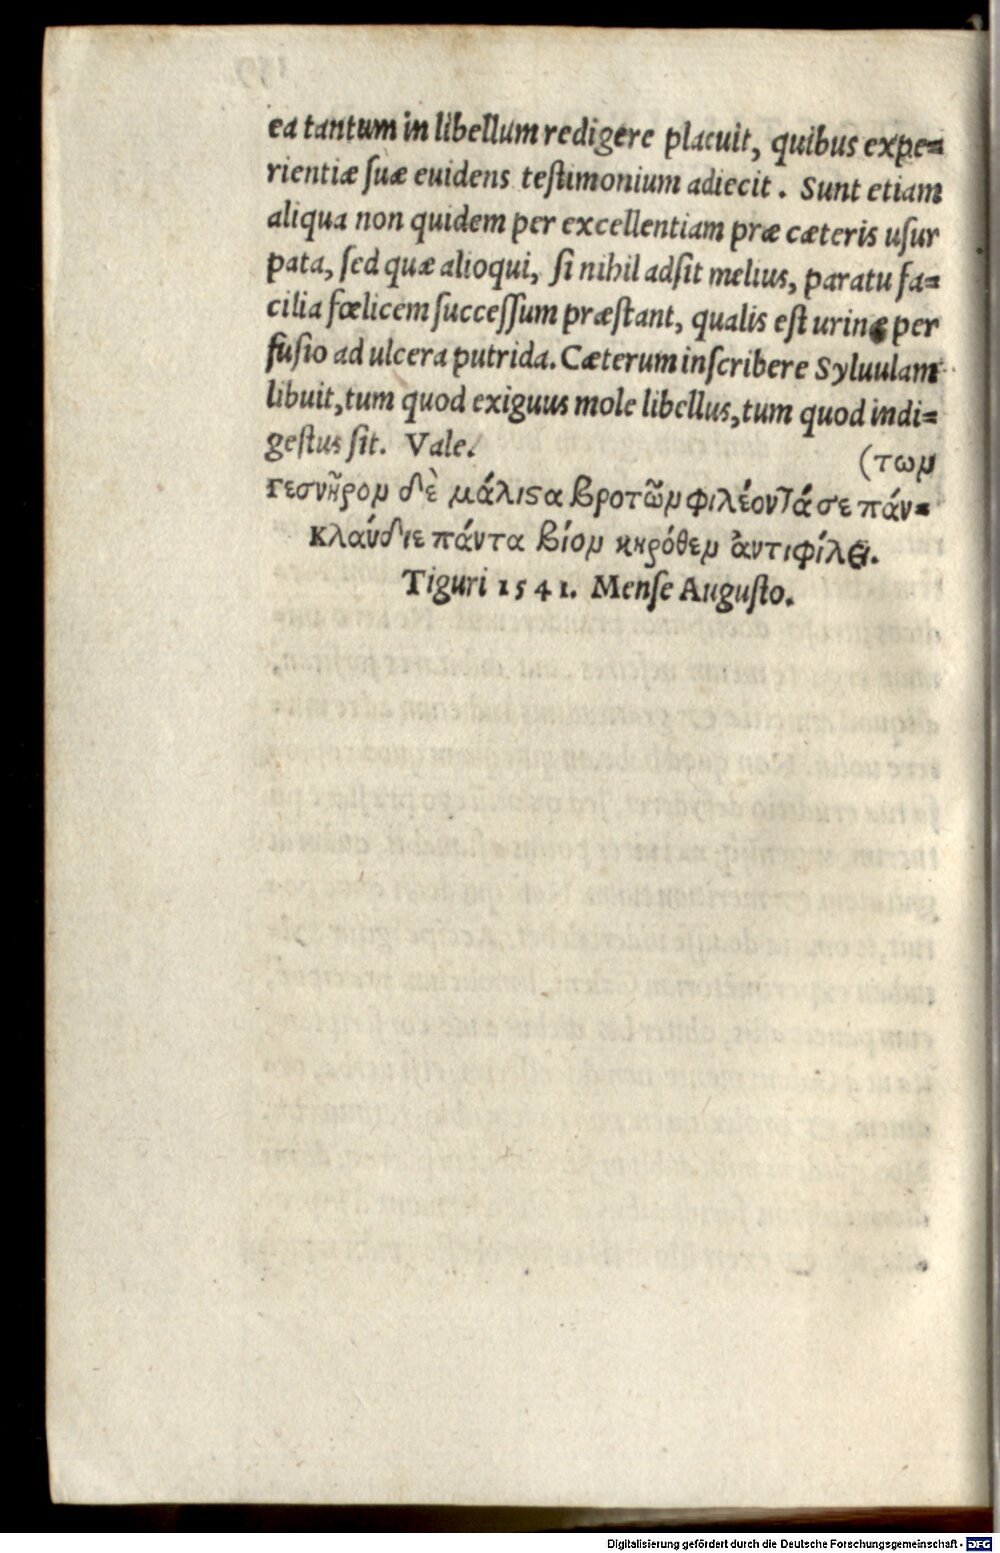 ea tantum in libellum redigere placuit, quibus expe=
rientiæ ſuæ euidens teſtimonium adiecit. Sunt etiam
aliqua non quidem per excellentiam præ cæteris uſur
pata, ſed quæ alioqui, ſi nihil adſit melius, paratu fa=
cilia fœlicem ſucceſſum præſtant, qualis eſt urinæ per
fuſio ad ulcera putrida. Cæterum inſcribere Syluulam
libuit, tum quod exiguus mole libellus, tum quod indi=
geſtus ſit. Vale.
(των
Γεσνῆρον δὲ μάλιϛα βροτῶν φιλέοντά σε πάν=
Κλαύδιε πάντα βίον κηρόθεν ἀντιφίλει.
Tiguri 1541. Menſe Auguſto.
Digitalisierung gefördert durch die Deutsche Forschungsgemeinschaft - DFG